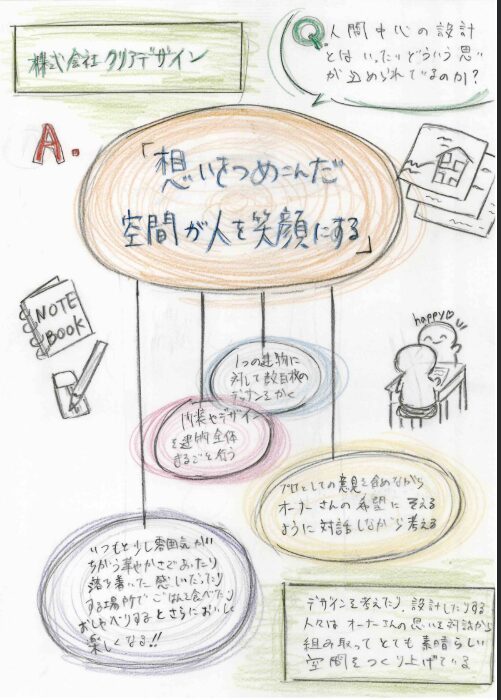 株式会社 クリアデザイン
Q 人間中心の設計
とはいったいどういう思い
が込められているのか?
A.
「想いをつめこんだ
空間が人を笑顔にする」
NOTE
BOOK
happy♡
1つの建物に
対して数百枚の
デザインをかく
内装やデザイン
を建物全体
まるごと行う
プロとしての意見も含めながら
オーナーさんの希望に添える
ように対話しながら考える
いつもと少し雰囲気が
ちがう華やかさであったり
落ち着いた感じだったり
する場所でごはんを食べたり
おしゃべりするとさらにおいしく
楽しくなる!!
デザインを考えたり、設計したりする
人々はオーナーさんの思いを対話から
組み取ってとても素晴らしい
空間をつくり上げている